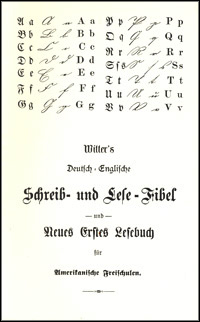 A a A a P p P p
B b B b Q q Q q
C c C c R r R r
D d D d S ſ s S s
E e E e T t T t
F f F f U u U u
G g G g V v V v
Witter's
Deutsch-Englische
Schreib- und Leſe-Fibel
— und —
Neues Erſtes Leſebuch
für
Amerikaniſche Freiſchulen.